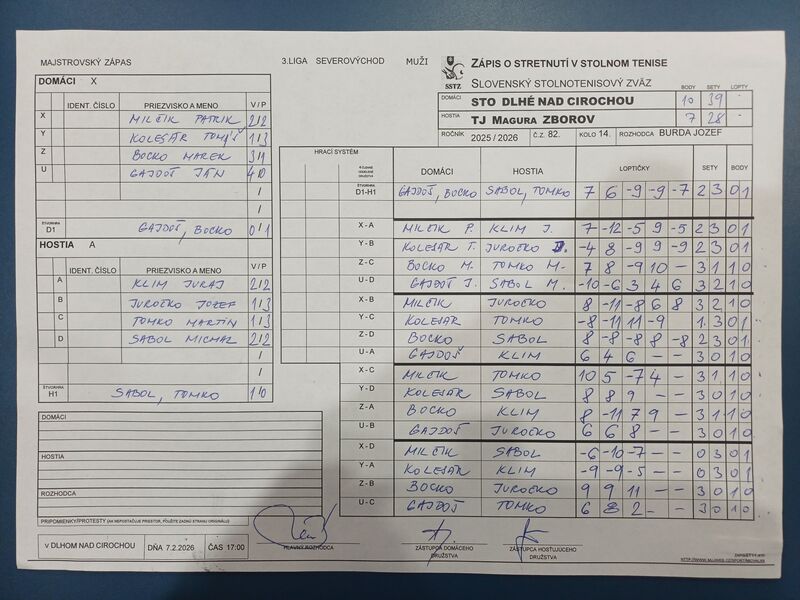 MAJSTROVSKÝ ZÁPAS
3.LIGA SEVEROVÝCHOD MUŽI
ZÁPIS O STRETNUTÍ V STOLNOM TENISE
SSTZ SLOVENSKÝ STOLNOTENISOVÝ ZVÄZ
BODY SETY LOPTY
DOMÁCI STO DLHÉ NAD CIROCHOU 10 39 -
HOSTIA TJ MAGURA ZBOROV 7 28 -
ROČNÍK 2025 / 2026 Č.Z. 82. KOLO 14. ROZHODCA BURDA JOZEF
DOMÁCI X
IDENT. ČÍSLO PRIEZVISKO A MENO V / P
X MILČIK PATRIK 2/2
Y KOLESÁR TOMÁŠ 1/3
Z BOCKO MAREK 3/1
U GAJDOŠ JÁN 4/0
/
/
ŠTVORHRA D1 GAJDOŠ, BOCKO 0/1
HOSTIA A
IDENT. ČÍSLO PRIEZVISKO A MENO V / P
A KLIM JURAJ 2/2
B JUROČKO JOZEF 1/3
C TOMKO MARTIN 1/3
D SABOL MICHAL 2/2
/
/
ŠTVORHRA H1 SABOL, TOMKO 1/0
HRACÍ SYSTÉM
DOMÁCI HOSTIA LOPTIČKY SETY BODY
ŠTVORHRA D1-H1 GAJDOŠ, BOCKO SABOL, TOMKO 7 6 -9 -9 -7 2 3 0 1
X - A MILČIK P. KLIM J. 7 -12 -5 9 -5 2 3 0 1
Y - B KOLESÁR T. JUROČKO J. -4 8 -9 9 -9 2 3 0 1
Z - C BOCKO M. TOMKO M. 7 8 -9 10 - 3 1 1 0
U - D GAJDOŠ J. SABOL M. -10 -6 3 4 6 3 2 1 0
X - B MILČIK JUROČKO 8 -11 -8 6 8 3 2 1 0
Y - C KOLESÁR TOMKO -8 -11 11 -9 1 3 0 1
Z - D BOCKO SABOL 8 -8 -8 8 -8 2 3 0 1
U - A GAJDOŠ KLIM 6 4 6 - - 3 0 1 0
X - C MILČIK TOMKO 10 5 -7 4 - 3 1 1 0
Y - D KOLESÁR SABOL 8 8 9 - - 3 0 1 0
Z - A BOCKO KLIM 8 -11 7 9 - 3 1 1 0
U - B GAJDOŠ JUROČKO 6 6 8 - - 3 0 1 0
X - D MILČIK SABOL -6 -10 -7 - - 0 3 0 1
Y - A KOLESÁR KLIM -9 -9 -5 - - 0 3 0 1
Z - B BOCKO JUROČKO 9 9 11 - - 3 0 1 0
U - C GAJDOŠ TOMKO 6 8 2 - - 3 0 1 0
DOMÁCI
HOSTIA
ROZHODCA
PRIPOMIENKY/PROTESTY (AK NEPOSTAČUJE PRIESTOR, POUŽITE ZADNÚ STRANU ORIGINÁLU)
V DLHOM NAD CIROCHOU DŇA 7.2.2026 ČAS 17:00
HLAVNÝ ROZHODCA
ZÁSTUPCA DOMÁCEHO DRUŽSTVA
ZÁSTUPCA HOSŤUJÚCEHO DRUŽSTVA